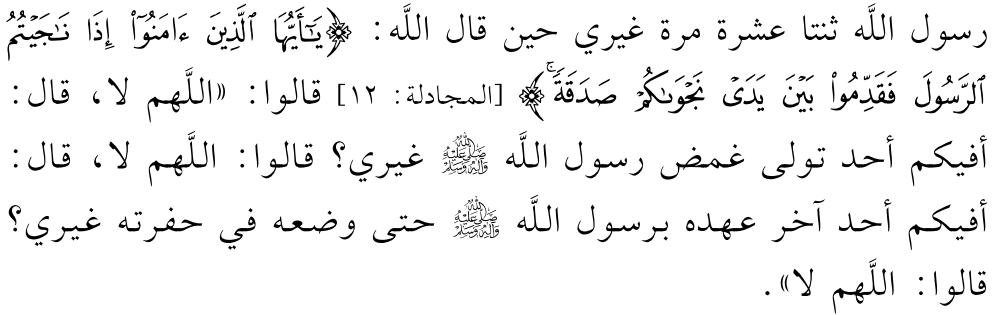 رسول اللَّه ثنتا عشرة مرة غيري حين قال اللَّه: ﴿يَٰٓأَيُّهَا ٱلَّذِينَ ءَامَنُوٓاْ إِذَا نَٰجَيۡتُمُ
ٱلرَّسُولَ فَقَدِّمُواْ بَيۡنَ يَدَيۡ نَجۡوَىٰكُمۡ صَدَقَةٗۚ﴾ [المجادلة: ١٢] قالوا: «اللَّهم لا، قال:
أفيكم أحد تولى غمض رسول اللَّه ﷺ غيري؟ قالوا: اللَّهم لا، قال:
أفيكم أحد آخر عهده برسول اللَّه ﷺ حتى وضعه في حفرته غيري؟
قالوا: اللَّهم لا».